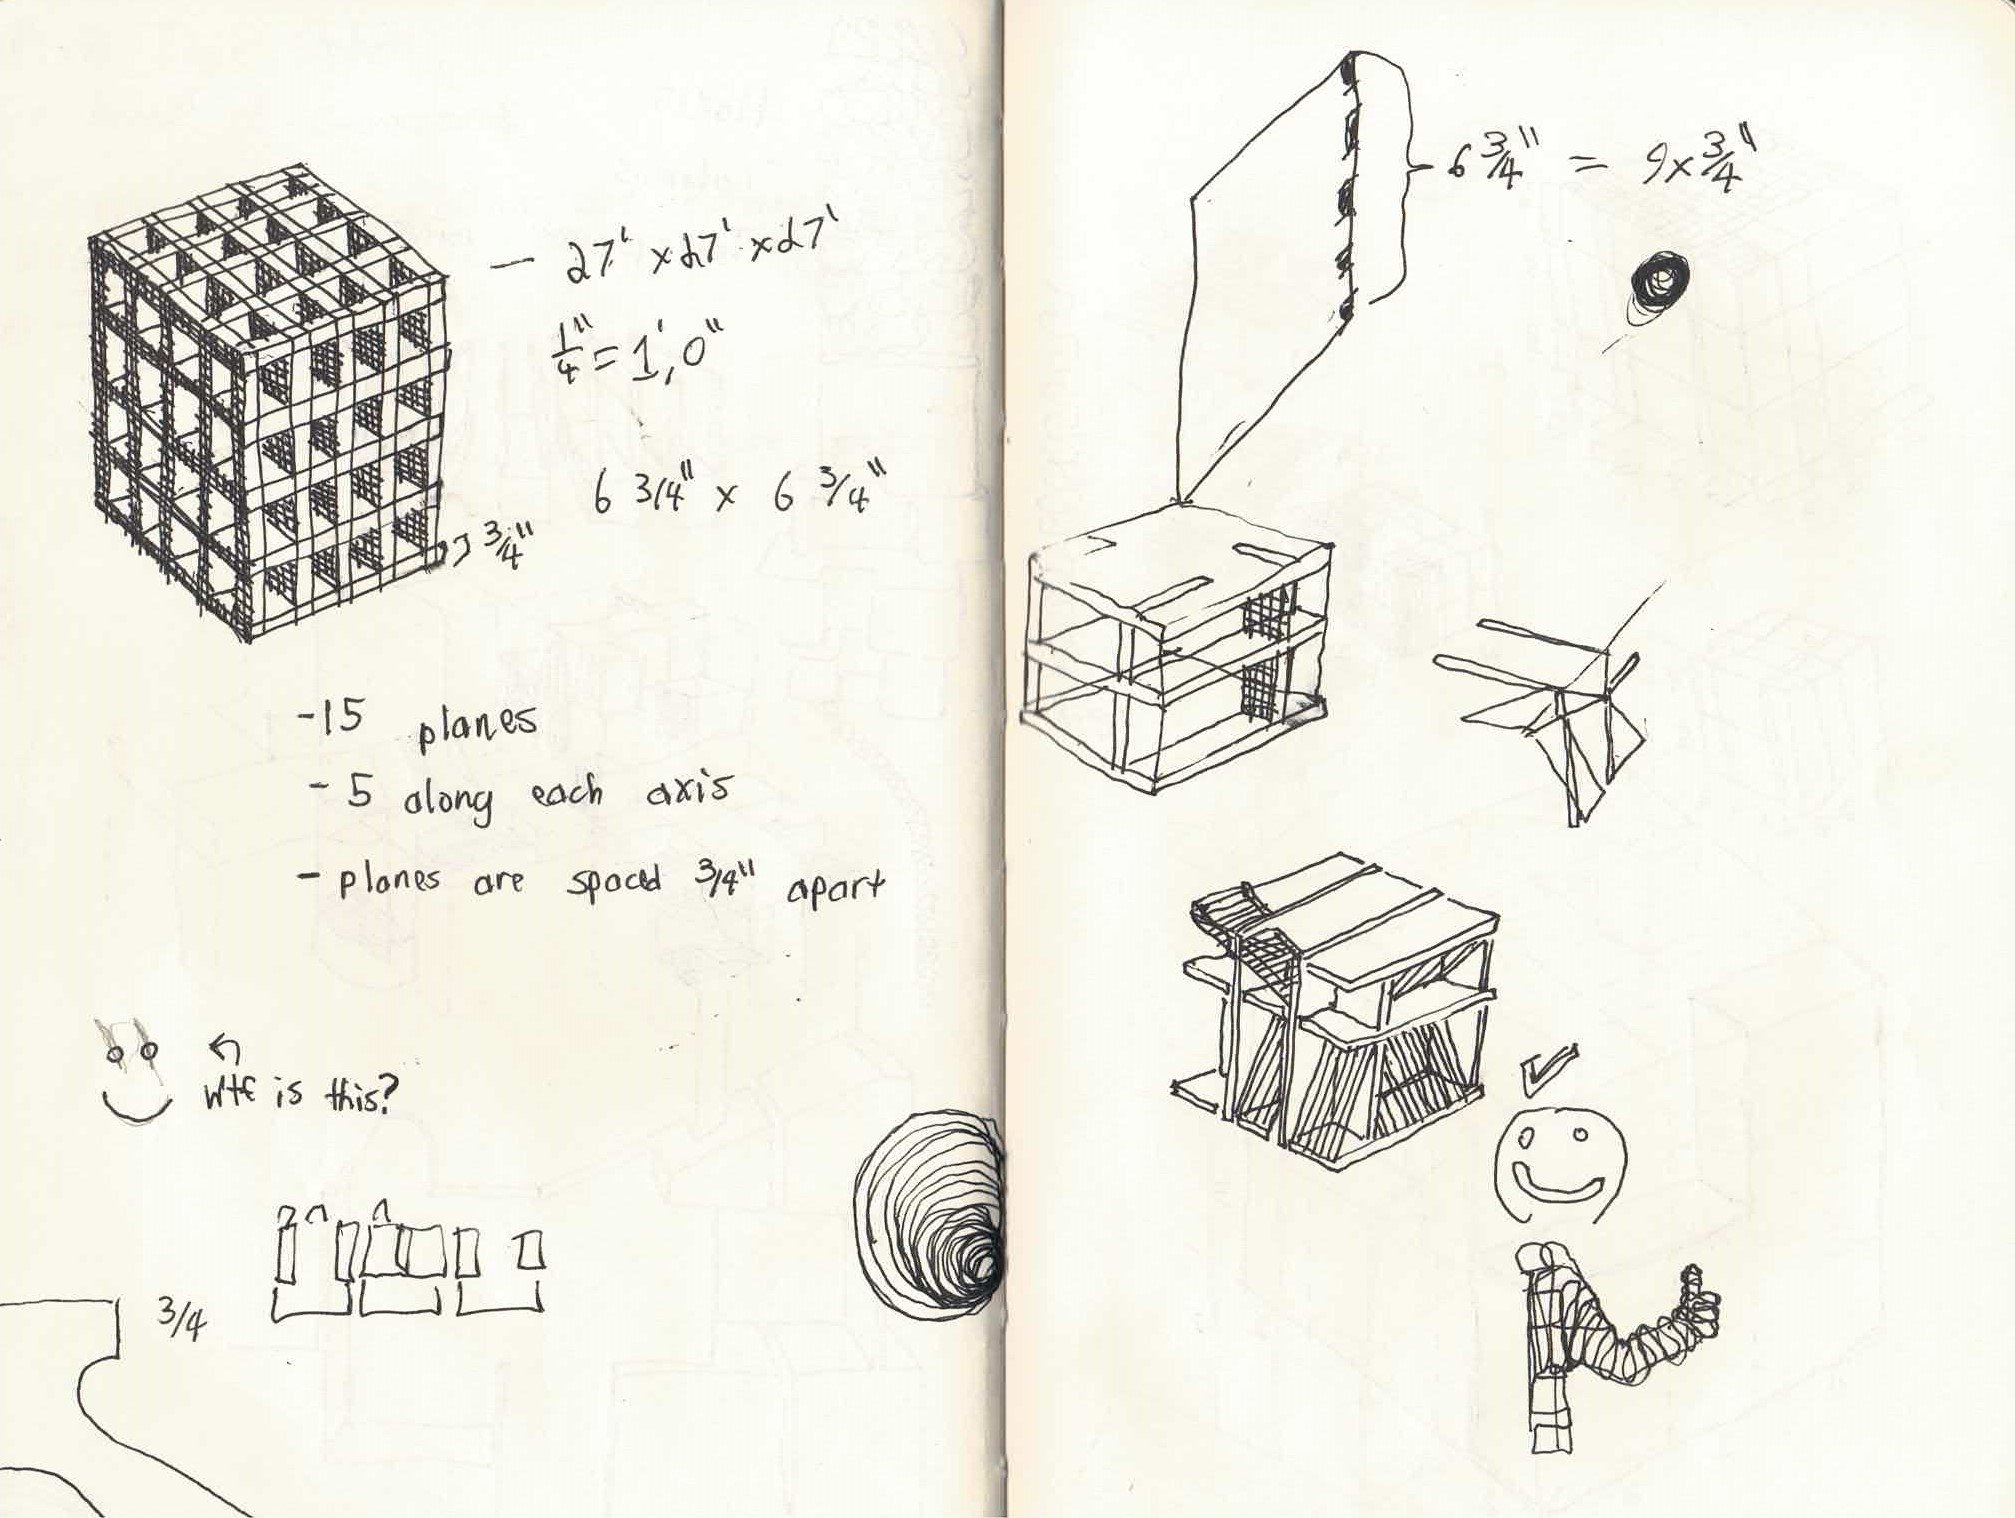 - 27' x 27' x 27'
1/4" = 1', 0"
6 3/4" x 6 3/4"
3/4"
-15 planes
- 5 along each axis
- planes are spaced 3/4" apart
wtf is this?
3/4
6 3/4" = 9 x 3/4"